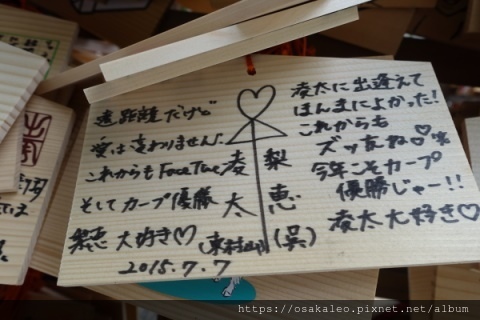 凌太に出逢えて
ほんまによかった！
これからも
ズッ友ね♡笑
今年こそカープ
優勝じゃー!!
凌太大好き♡
梨恵
(呉)
凌太
(東村山)
遠距離だけど
愛は変わりません!
これからもFaceTime
そしてカープ優勝
梨恵 大好き♡
2015.7.7
https://osakaleo.pixnet.net/album